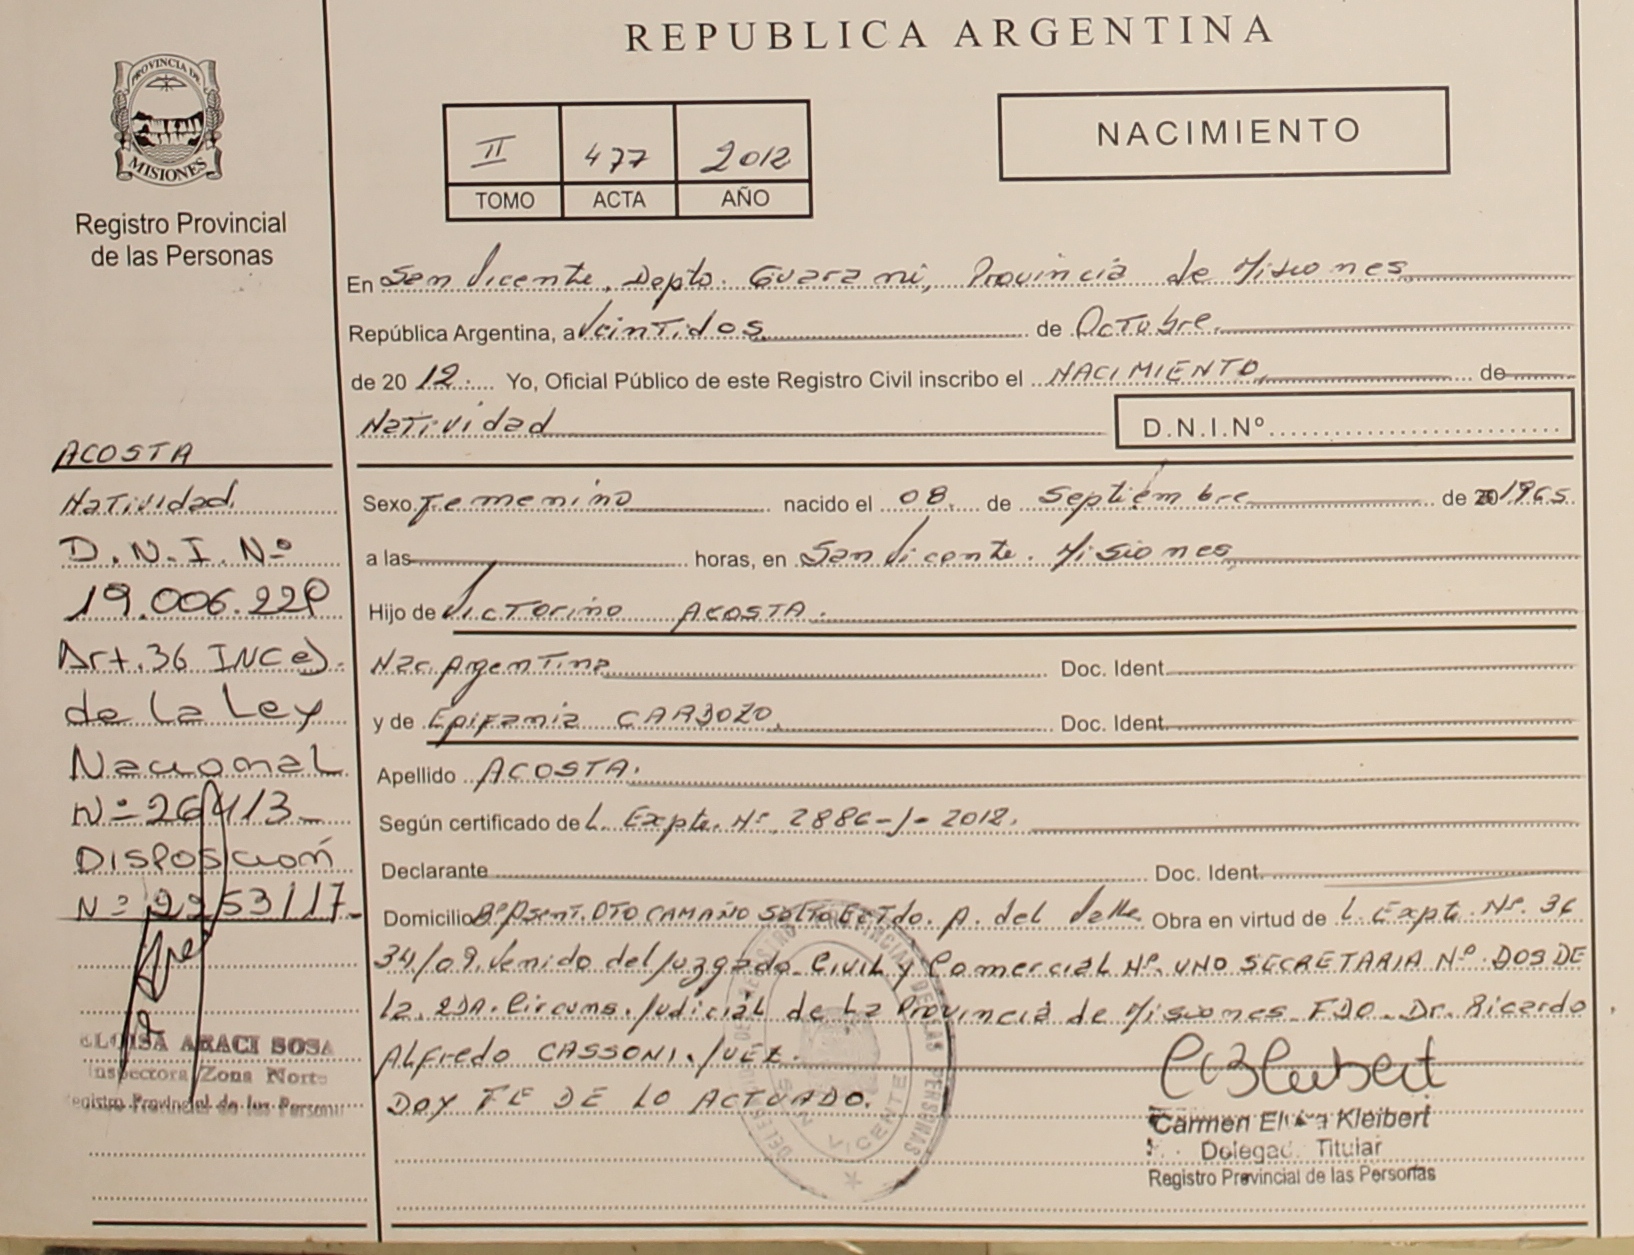 REPUBLICA ARGENTINA
PROVINCIA DE
MISIONES
Registro Provincial
de las Personas
II 477 2012
TOMO ACTA AÑO
NACIMIENTO
En San Vicente, Depto. Guarani, Provincia de Misiones
República Argentina, a Veintidos de Octubre
de 20 12 Yo, Oficial Público de este Registro Civil inscribo el NACIMIENTO de
Natividad
D.N.I.Nº
ACOSTA
Natividad
D.N.I. Nº
19.006.22
Art. 36 INC e)
de la Ley
Nacional
Nº 26413
DISPOSICIÓN
Nº 2253/17
ELOISA ARACI SOSA
Inspectora Zona Norte
Registro Provincial de las Personas
Sexo Femenino nacido el 08 de Septiembre de 1965
a las horas, en San Vicente. Misiones
Hijo de Victorino ACOSTA.
Nac. Argentina Doc. Ident.
y de Epifania CARDOZO, Doc. Ident.
Apellido ACOSTA.
Según certificado de L. Expte. Nº 2886-J-2012.
Declarante Doc. Ident.
Domicilio Bº DTO CAMAÑO A. del Valle Obra en virtud de L. Expte Nº. 36
34/09. Venido del Juzgado Civil y Comercial Nº. UNO SECRETARIA Nº DOS DE
la 2DA. Circuns. Judicial de La Provincia de Misiones FDO. Dr. Ricardo
Alfredo CASSONI. JUEZ.
DOY FE DE LO ACTUADO.
Carmen Elvira Kleibert
Delegada Titular
Registro Provincial de las Personas
SAN VICENTE